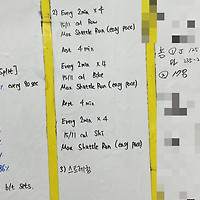 Split]
every 90 sec
%
86%
b/t sets.
2) Every 2min × 4
15/11 cal Row
Max Shuttle Run (easy pace)
Rest 4 min
Every 2min × 4
15/11 cal Bike
Max Shuttle Run (easy pace)
Rest 4 min
Every 2min × 4
15/11 cal Ski
Max Shuttle Run (easy pace)
3) 스트레칭
125